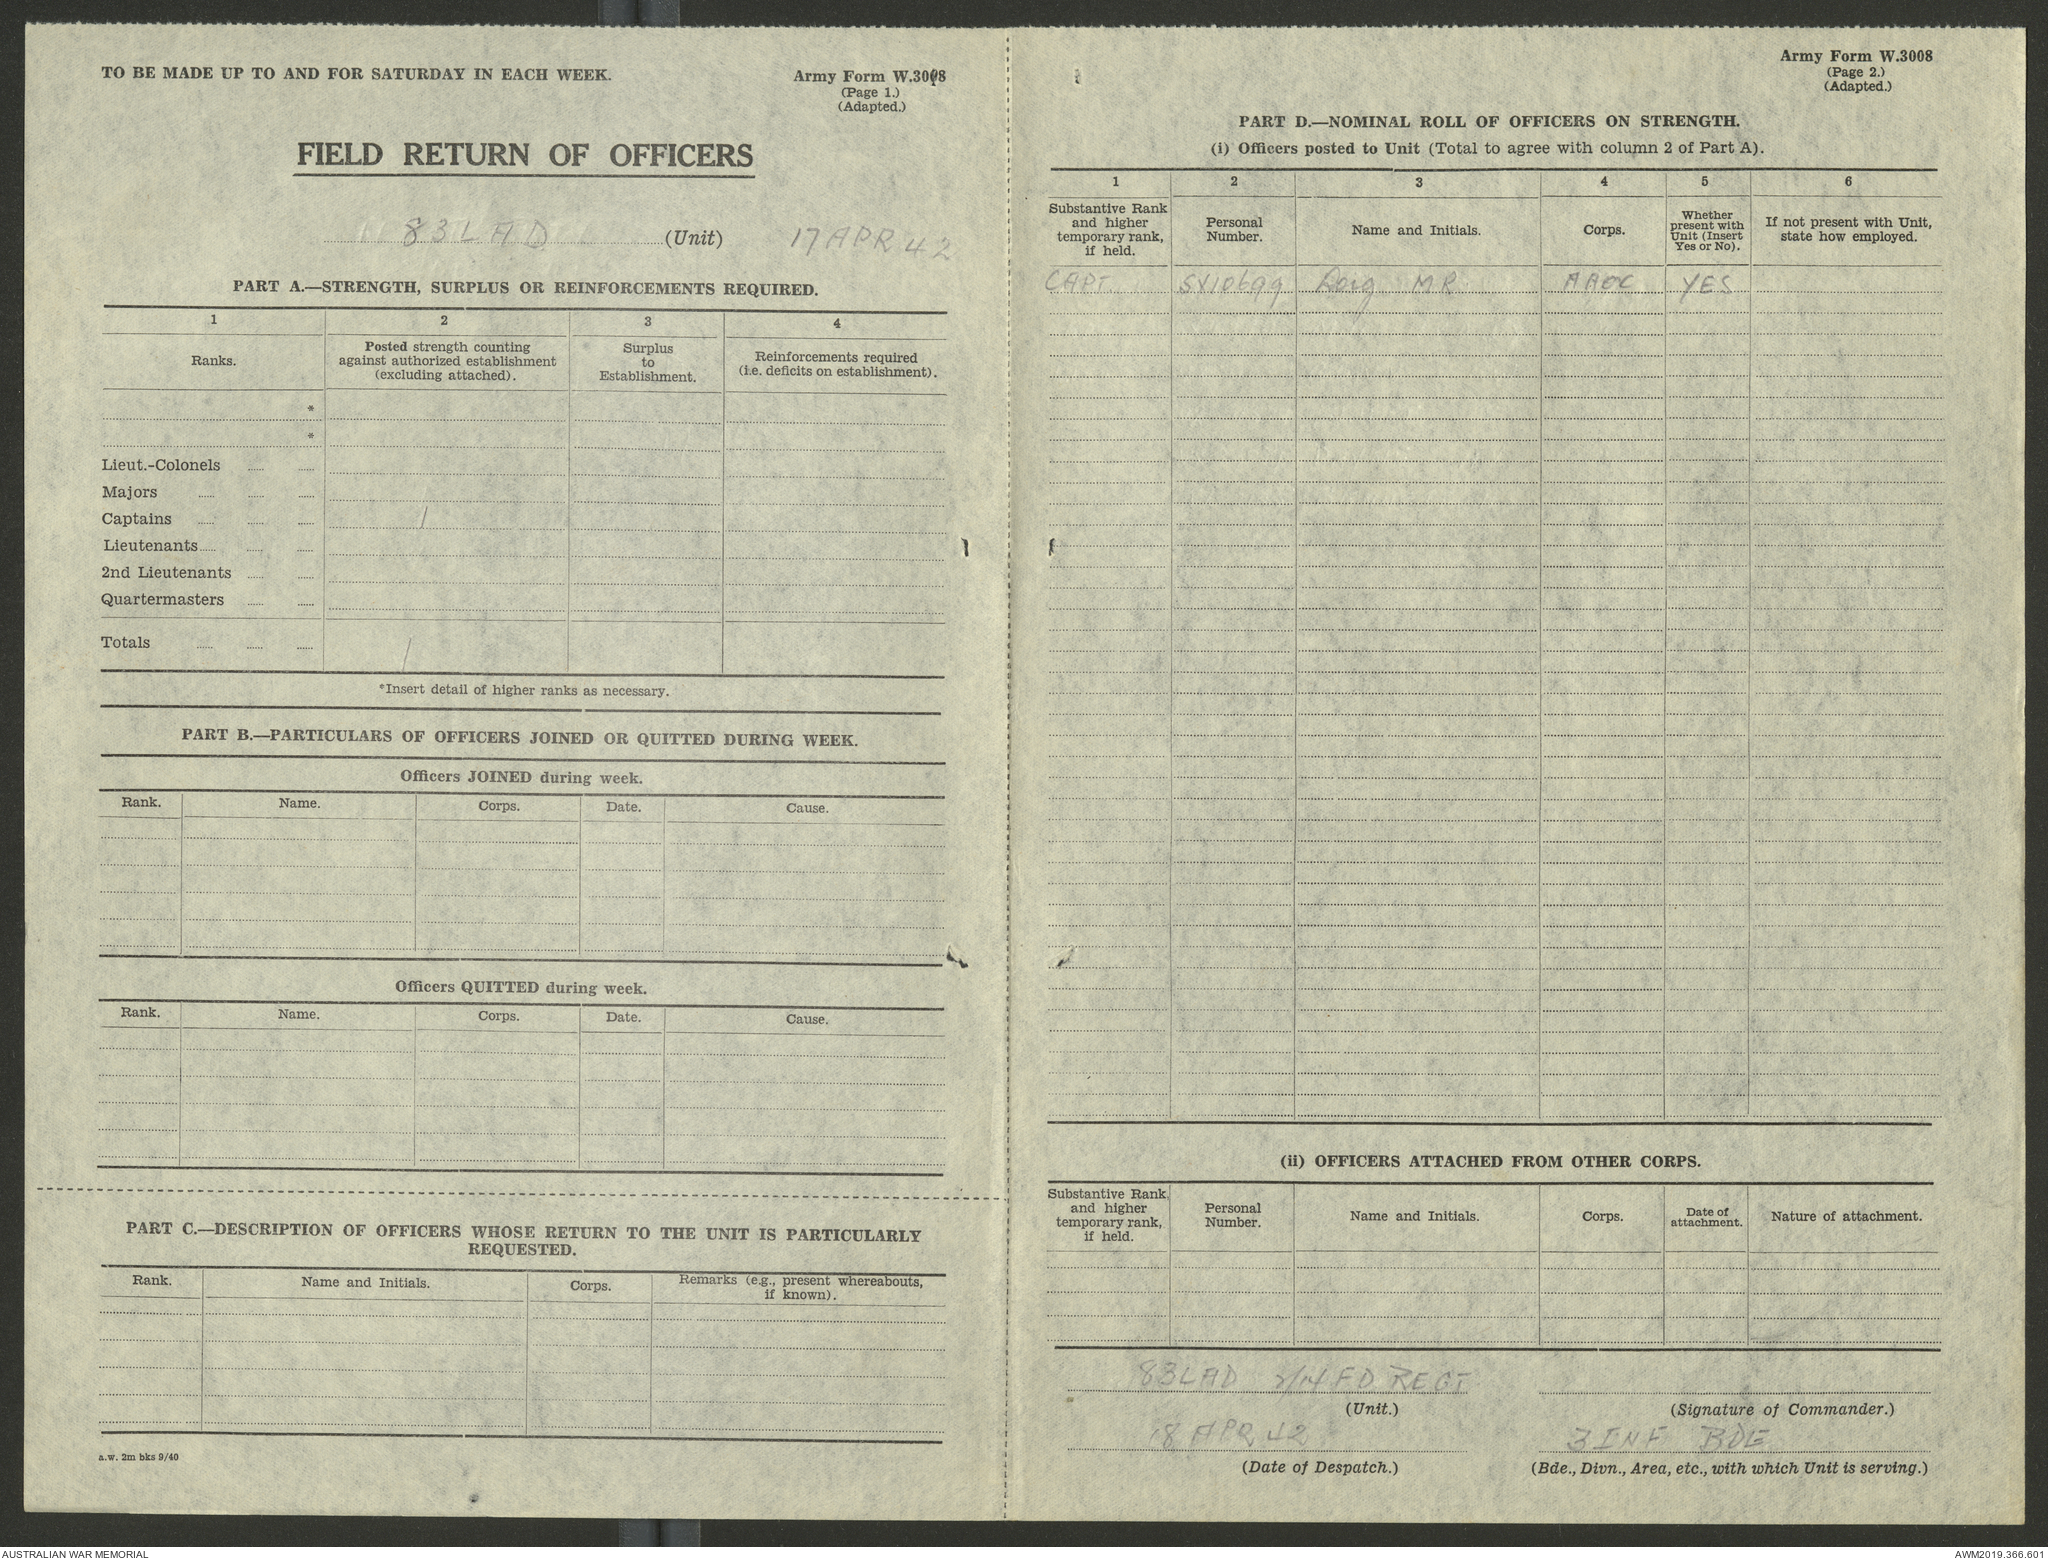 TO BE MADE UP TO AND FOR SATURDAY IN EACH WEEK.
Army Form W.3008
(Page 1.)
(Adapted.)
FIELD RETURN OF OFFICERS
83 LAD (Unit) 17 APR 42
PART A.—STRENGTH, SURPLUS OR REINFORCEMENTS REQUIRED.
1 2 3 4
Ranks.
Posted strength counting
against authorized establishment
(excluding attached).
Surplus
to
Establishment.
Reinforcements required
(i.e. deficits on establishment).
*
*
Lieut.-Colonels
Majors
Captains 1
Lieutenants
2nd Lieutenants
Quartermasters
Totals 1
*Insert detail of higher ranks as necessary.
PART B.—PARTICULARS OF OFFICERS JOINED OR QUITTED DURING WEEK.
Officers JOINED during week.
Rank. Name. Corps. Date. Cause.
Officers QUITTED during week.
Rank. Name. Corps. Date. Cause.
PART C.—DESCRIPTION OF OFFICERS WHOSE RETURN TO THE UNIT IS PARTICULARLY
REQUESTED.
Rank. Name and Initials. Corps.
Remarks (e.g., present whereabouts,
if known).
a.w. 2m bks 9/40
Army Form W.3008
(Page 2.)
(Adapted.)
PART D.—NOMINAL ROLL OF OFFICERS ON STRENGTH.
(i) Officers posted to Unit (Total to agree with column 2 of Part A).
1 2 3 4 5 6
Substantive Rank
and higher
temporary rank,
if held.
Personal
Number.
Name and Initials.
Corps.
Whether
present with
Unit (Insert
Yes or No).
If not present with Unit,
state how employed.
CAPT SX10699 MR AAOC YES
(ii) OFFICERS ATTACHED FROM OTHER CORPS.
Substantive Rank
and higher
temporary rank,
if held.
Personal
Number.
Name and Initials.
Corps.
Date of
attachment.
Nature of attachment.
83 LAD 2/14 FD REGT
(Unit.)
(Signature of Commander.)
18 APR 42
3 INF BDE
(Date of Despatch.)
(Bde., Divn., Area, etc., with which Unit is serving.)
AUSTRALIAN WAR MEMORIAL
AWM2019.366.601